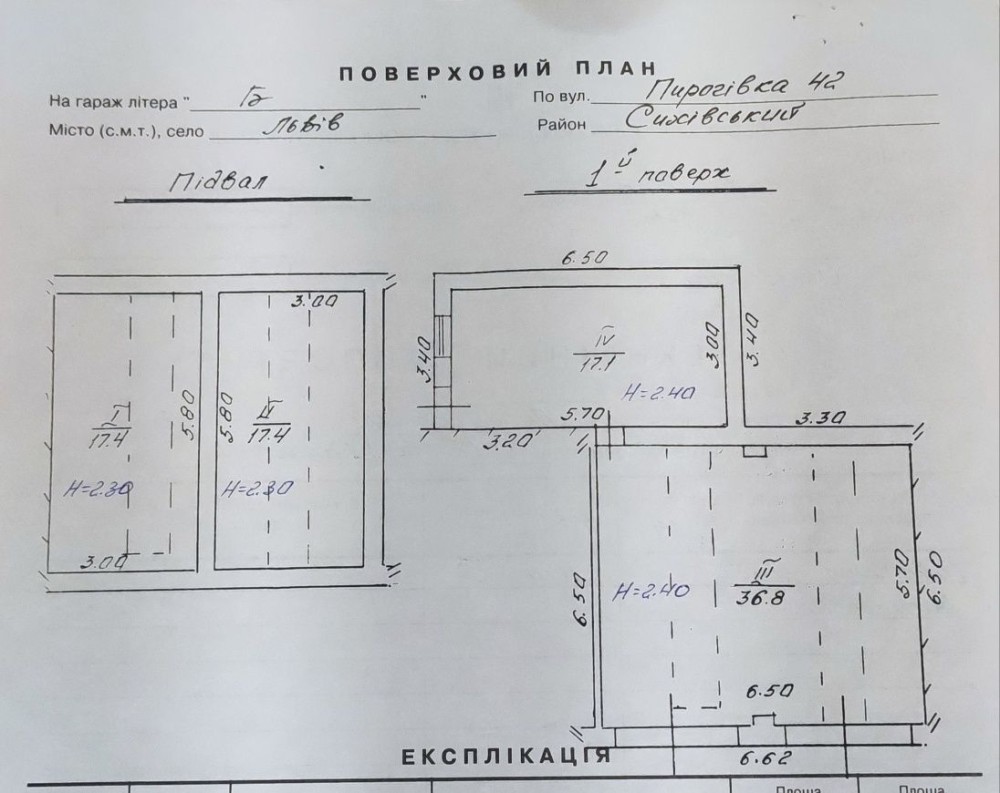 ПОВЕРХОВИЙ ПЛАН
На гараж літера " Г2 "
По вул. Пирогівка 42
Місто (с.м.т.), село Львів
Район Сихівський
Підвал
1й поверх
6.50
3.00
3.40
IV
17.1
3.00
3.40
H=2.40
5.70
3.30
3.20
I
17.4
5.80
5.80
II
17.4
H=2.30
H=2.30
3.00
6.50
H=2.40
III
36.8
5.70
6.50
6.50
6.62
ЕКСПЛІКАЦІЯ
Площа
Площа